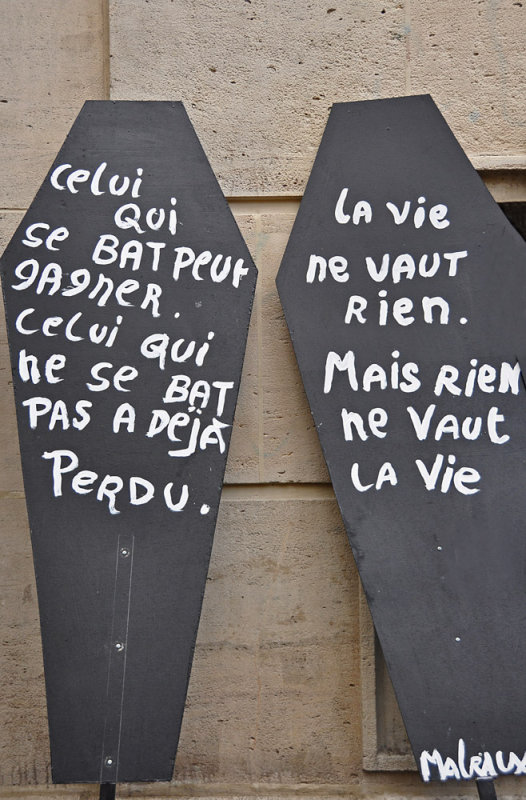 celui
QUi
se BAT peut
gAgneR.
celui qui
ne se BAT
PAS A DÉJÀ
PERDU.
LA vie
ne vAUT
Rien.
Mais Rien
ne VAUt
LA Vie
MALRAUX